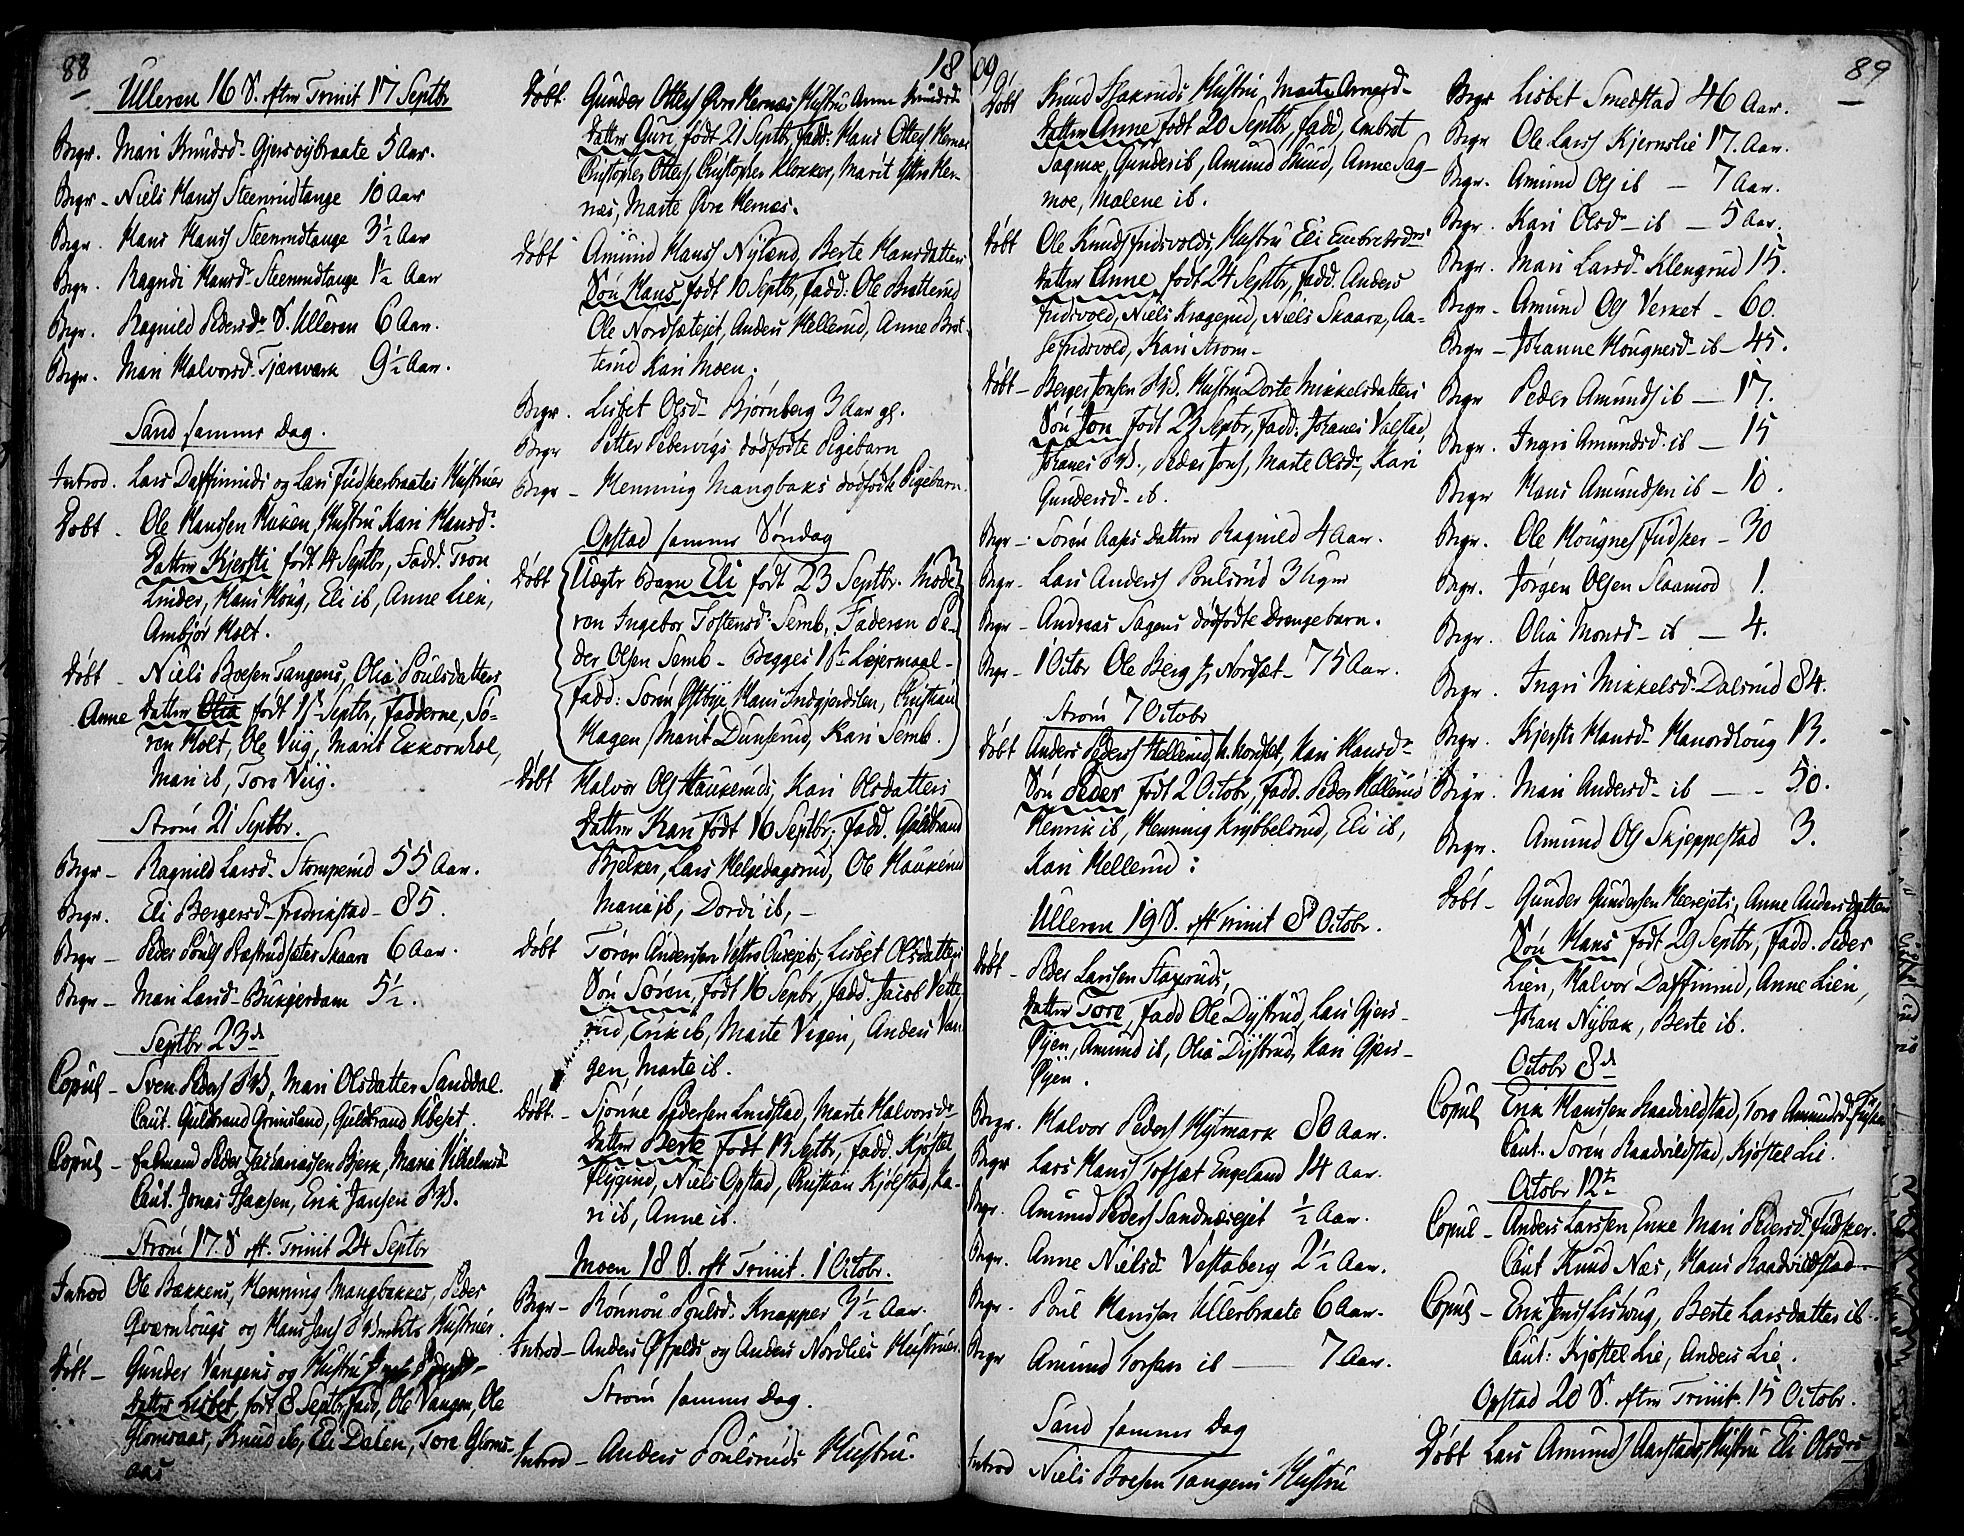 88
Ulleren 16 S. efter Trinit 17 Septbr
Begr. Mari Knudsd. Gjersøybraate 5 Aar.
Begr. Niels Hans Steenrudtange 10 Aar
Begr. Hans Hans Steenrudtange 3½ Aar
Begr. Ragndi Hansd. Steenrudtange 1½ Aar
Begr. Ragnild Pedersdr S. Ulleren 6 Aar.
Begr. Mari Halvorsd. Tjernvark 9½ Aar.
Sand samme Dag.
Introd. Lars Daffinruds og Lars Fudskerbraates Hustruer
Døbt. Ole Hansen Haken, Hustru Kari Hansd.
Datter Kjersti født 14 Septbr, Fadd. Tron
Linder, Hans Houg, Eli ib, Anne Lien,
Ambjør Holt.
Døbt. Niels Boesen Tangens, Olia Poulsdatters
Anne Datter Olia født 15 Septbr, Fadderne, Sø-
ren Holt, Ole Viig, Marit Ekkornhol,
Mari ib, Tore Viig.
Strøm 21 Septbr.
Begr. Ragnild Larsd. Stomperud 55 Aar.
Begr. Eli Bergersd. Fredrikstad 85.
Begr. Peder Pouls Sæter Skaare 6 Aar.
Begr. Mari Larsd. Bukjerdam 5½.
Septbr 23de
Copul. Sven Peders, Mari Olsdatter Sanddal.
Caut. Guldbrand Grinsland, Guldbrand
Copul. Peder Bjerk, Maria Vilhelmsd.
Caut. Jonas Isaksen, Erik Jansen
Strøm 17 S. eft. Trinit 24 Septbr
Introd Ole Bakkens, Henning Mangbakkes, Peder
Qværnhougs og Hans Hustruer.
Døbt Gunder Vangens og Hustru
Datter Lisbet, født 8 Septbr, Fadd, Ole Vangen, Ole
Glomsaas, Knud ib, Eli Dalen, Tore Gloms-
aas
18
Døbt. Gunder Ottes Øvre Hernæs Hustru Anne Knudsd.
Datter Guri født 21 Septbr, Fadd: Hans Ottes Hernæs
Cristopher Ottes, Cristopher Klokker, Marit Ottes Her-
næs, Marte Øvre Hernæs.
Døbt Amund Hans Nyland, Berte Hansdatters
Søn Hans født 10 Septbr, Fadd: Ole Bratterud
Ole Nordsæteiet, Anders Hellerud, Anne Brat-
terud Kari Moen.
Begr. Lisbet Olsd. Bjørnberg 3 Aar gl.
Begr Petter Pedervigs dødfødte Pigebarn
Begr. Henning Mangbaks dødfødte Pigebarn.
Opstad samme Søndag
Døbt Uægte Barn Eli født 23 Septbr. Mode-
ren Ingebor Tostensd. Semb, Faderen Pe-
der Olsen Semb. Begges 1ste Leiermaal.
Fadd: Søren Østbye, Hans Indgjerdslen, Christian
Hagen, Marit Dunserud, Kari Semb.
Døbt Halvor Ols Haukeruds, Kari Olsdatters
Datter Kari Født 16 Septbr; Fadd. Guldbrand
Bjelker, Lars Helgedagsrud, Ole Haukerud
Maria ib, Dordi ib,
Døbt Søren Andersen Lisbet Olsdatters
Søn Søren, født 16 Septbr, Fadd: Jacob Vette-
rud, Erik ib, Marte Vigen, Anders Van-
gen, Marte ib.
Døbt. Sjønne Pedersen Lundstad, Marte Halvorsd.
Datter Berte født 13 Septbr, Fadd. Kjøstel
Flygind, Niels Opstad, Christian Kjølstad, Ka-
ri ib, Anne ib.
Moen 18 S. eft Trinit. 1 Octobr.
Begr. Rønnou Poulsd. Knapper 3½ Aar.
Introd. Anders Øfjelds og Anders Nordlies Hustruer.
Strøm samme Dag.
Introd. Anders Poulsruds Hustru.
09
Døbt Knud Hakruds Hustru Marte Arnesd.
Datter Anne født 20 Septbr, Fadd, Embret
Sagmoe, Gunder ib, Amund Skuud, Anne Sag-
moe, Malene ib.
Døbt Ole Knuds Fridsvolds, Hustru Eli Embretsdrs
Datter Anne, født 24 Septbr, Fadd: Anders
Fridsvold, Niels Kragerud, Niels Skaare, Aa-
se Fridsvold, Kari Strøm.
Døbt. Berger Jonsen Hustru Dorte Mikkelsdatters
Søn Jon født 23 Septbr, Fadd: Johanes Valstad,
Johanes, Peder Jons, Marte Olsdr, Kari
Gundersd. ib.
Begr. Søren Aases Datter Ragnild 4 Aar.
Begr. Lars Anders Poulsrud 3 Uger
Begr. Andreas Sagens dødfødte Drengebarn.
Begr. 1 Octbr Ole Berg Nordsæt 75 Aar.
Strøm 7 Octobr
Døbt Anders Peders Hellerud, Kari Hansd.
Søn Peder født 2 Octobr, Fadd. Peder Hellerud
Henrik ib, Henning Krybbelsrud, Eli ib,
Kari Hellerud:
Ulleren 19 S. eft Trinit 8 Octobr.
Døbt Peder Larsen Staxruds,
Datter Tore, Fadd Ole Dystrud, Lars Gjers-
Øyen, Amund ib, Olia Dystrud, Kari Gjers-
Øyen.
Begr. Halvor Peders Hytmark 80 Aar.
Begr Lars Hans Tofsæt Engeland 14 Aar.
Begr. Amund Peders Sandnæseiet ½ Aar.
Begr. Anne Nielsd Vestaberg 2½ Aar.
Begr. Poul Hansen Ullerbraate 6 Aar.
Begr Amund Torsen ib — 7 Aar.
Sand samme Dag
Introd Niels Boesen Tangens Hustru
89
Begr Lisbet Smedstad 46 Aar.
Begr Ole Lars Kjernslie 17 Aar.
Begr. Amund Ols ib — 7 Aar.
Begr. Kari Olsd. ib — 5 Aar.
Begr. Mari Larsd. Klengrud 15.
Begr. Amund Ols Verket — 60.
Begr. Johanne Hougnesd. ib — 45.
Begr Peder Amunds ib — 17.
Begr. Ingri Amundsd. ib — 15
Begr Hans Amundsen ib — 10.
Begr. Ole Hougnes Fudsker — 30
Begr. Jørgen Olsen Slaamod 1.
Begr. Olia Monsd. ib — 4.
Begr. Ingri Mikkelsd. Dalsrud 84.
Begr. Kjersti Hansd. Hanordhoug 13.
Begr. Mari Andersd. ib — 50.
Begr. Amund Ols Skjeppestad 3.
Døbt. Gunder Gundersen Anne Andersdatters
Søn Hans født 29 Septbr, Fadd. Peder
Lien, Halvor Daffinrud, Anne Lien,
Johan Nybak, Berte ib.
Octobr 8de
Copul Erik Hansen Raadvildstad, Tore Amundsd. Fudsker
Caut. Søren Raadvildstad, Kjøstel Lie.
Octobr 12te
Copul. Anders Larsen Enke Mari Pedersd. Fudsker.
Caut Knud Næs, Hans Raadvildstad
Copul. Erik Jens Listoug, Berte Larsdatter ib.
Caut: Kjøstel Lie, Anders Lie.
Opstad 20 S. efter Trinit. 15 Octobr.
Døbt Lars Amunds Aarstads, Hustru Eli Olsdrs